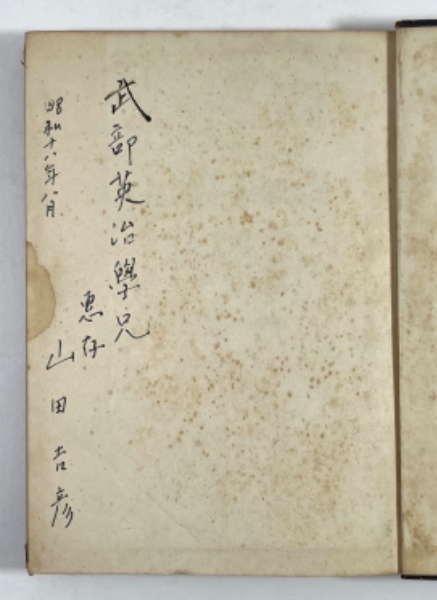 武部英治學兄
惠存
昭和十八年八月
山田吉彦